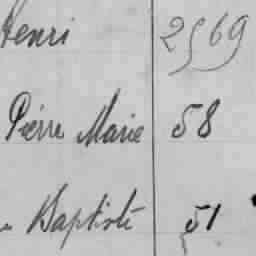 Henri 2569
Pierre Marie 58
Baptiste 51